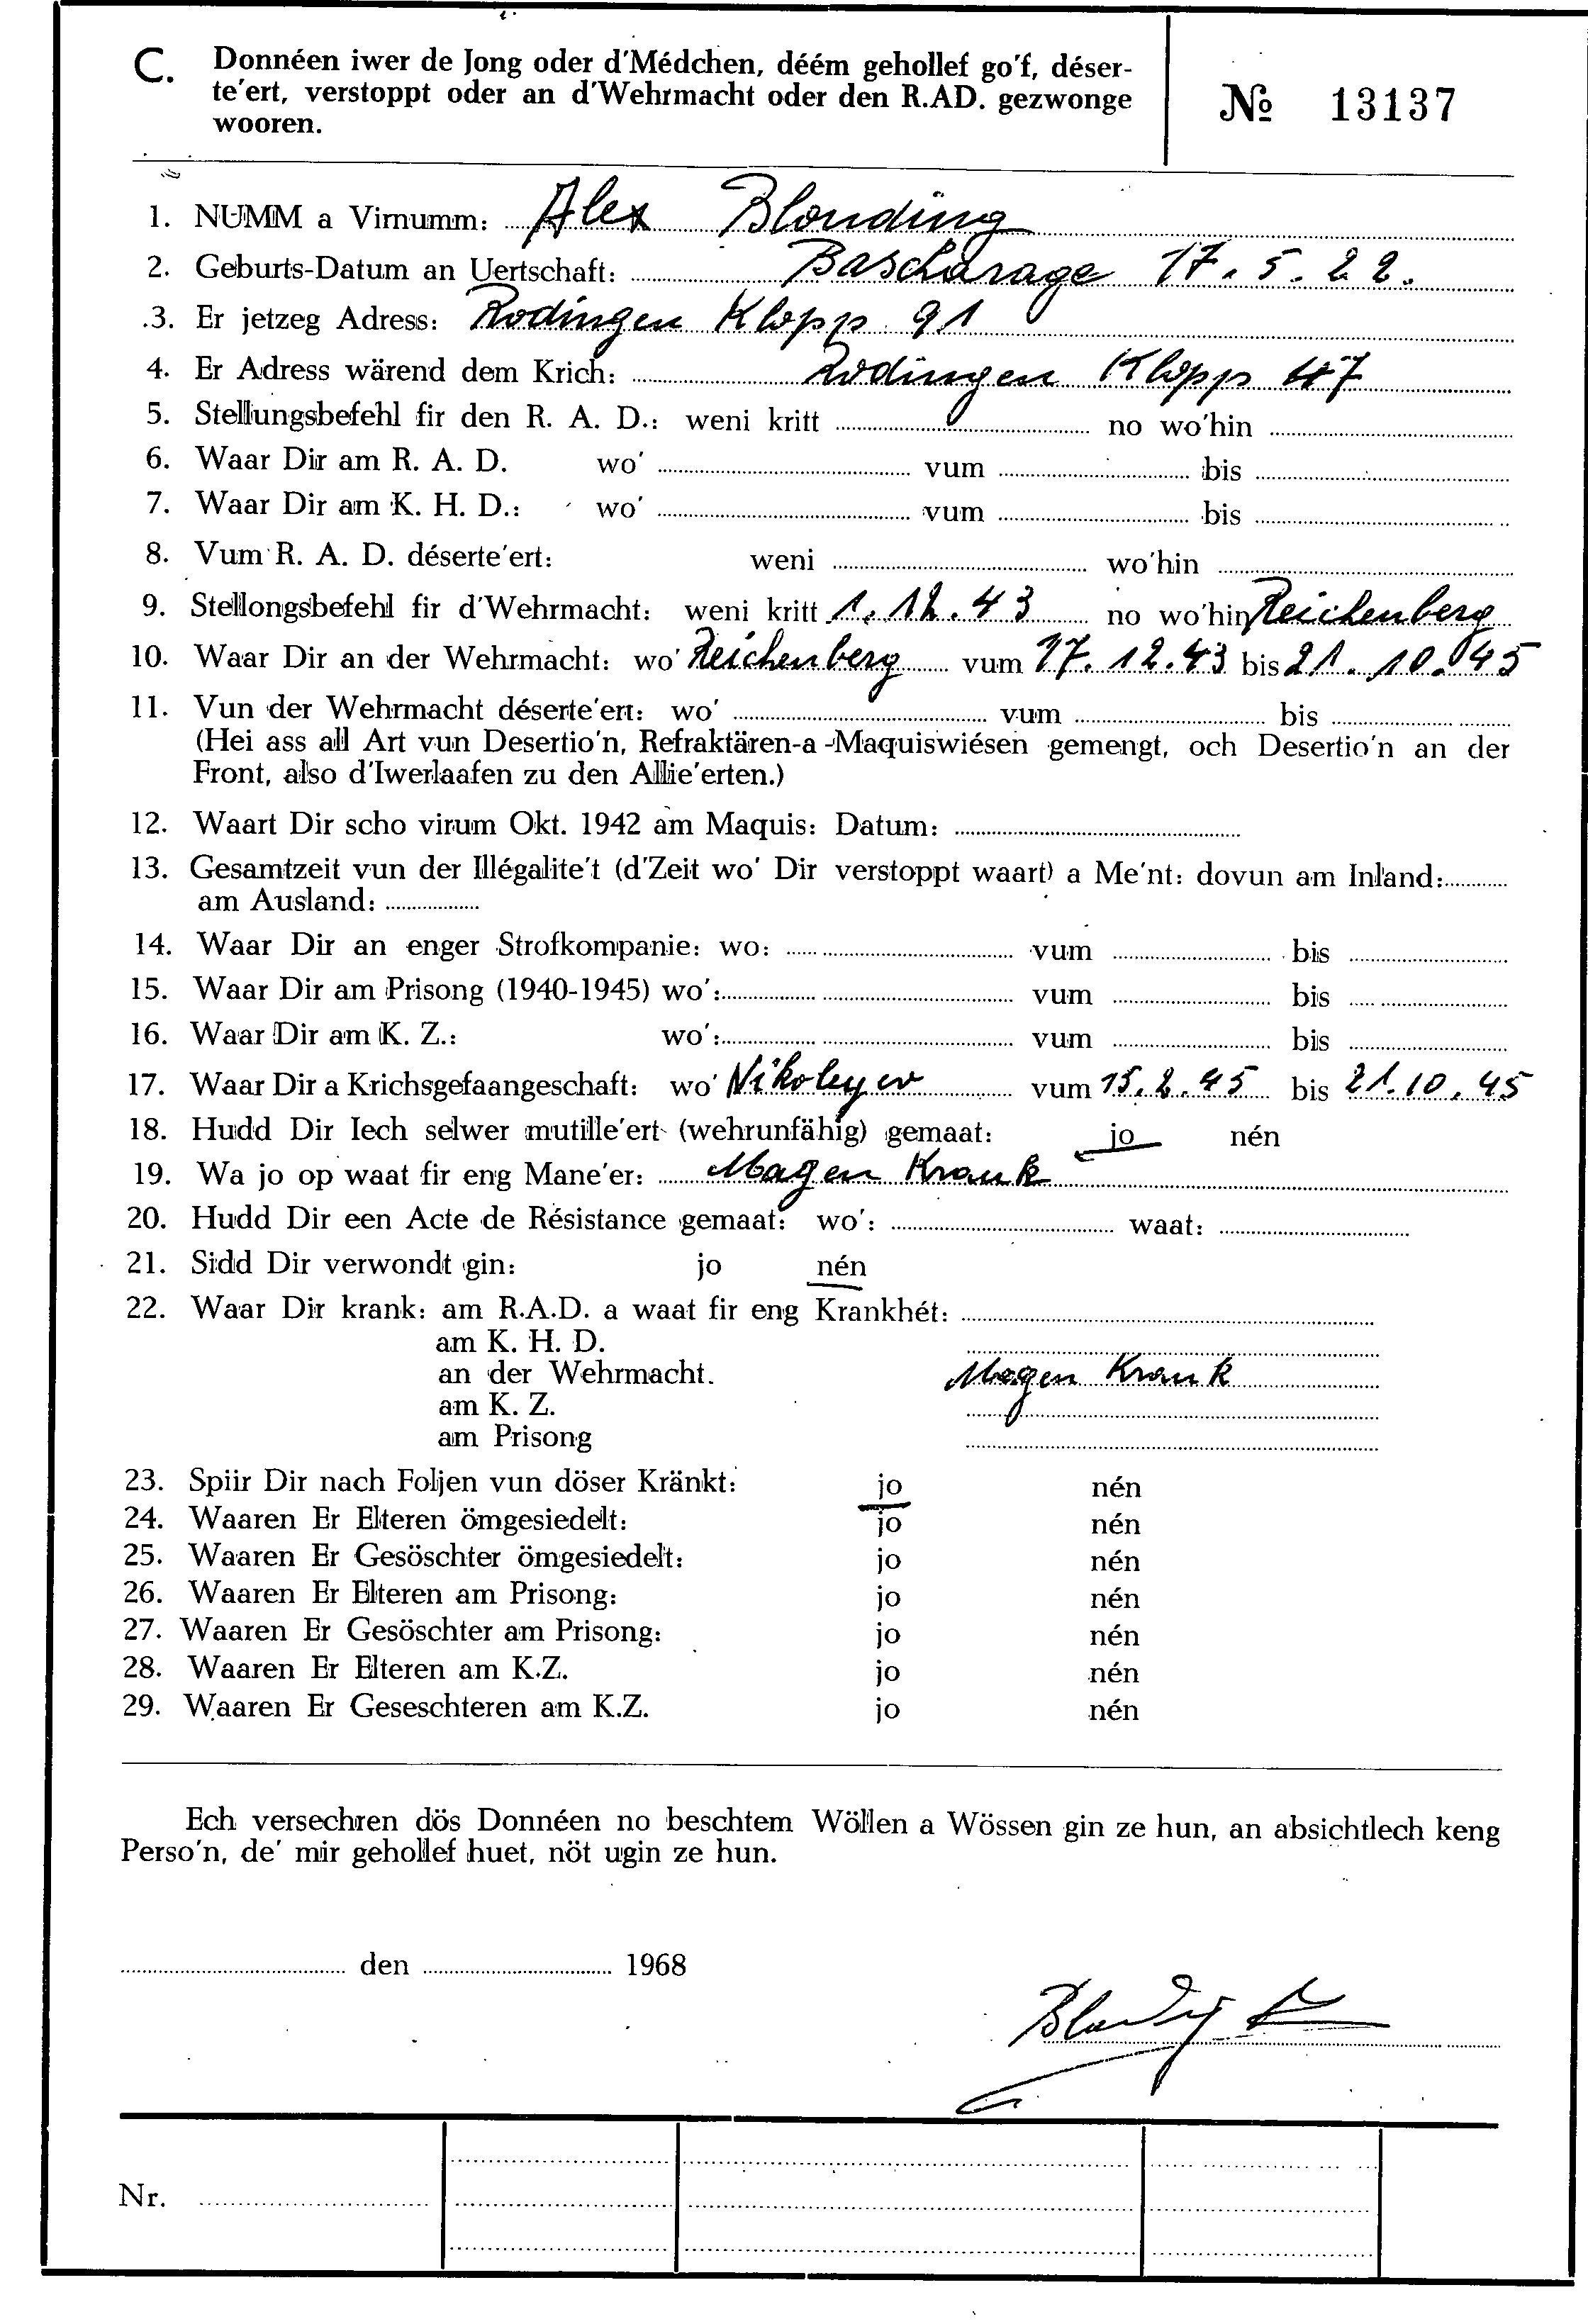 C. Donnéen iwer de Jong oder d'Médchen, déém gehollef go'f, déser-
te'ert, verstoppt oder an d'Wehrmacht oder den R.AD. gezwonge
wooren.
№ 13137
1. NUMM a Virnumm: Alex Blonding
2. Geburts-Datum an Uertschaft: Bascharage 17.5.22.
3. Er jetzeg Adress: Rodingen Klopp 91
4. Er Adress wärend dem Krich: Rodingen Klopp 47
5. Stellungsbefehl fir den R. A. D.: weni kritt no wo'hin
6. Waar Dir am R. A. D. wo' vum bis
7. Waar Dir am K. H. D.: wo' vum bis
8. Vum R. A. D. déserte'ert: weni wo'hin
9. Stellongsbefehl fir d'Wehrmacht: weni kritt 1.12.43 no wo'hin Reichenberg
10. Waar Dir an der Wehrmacht: wo' Reichenberg vum 17.12.43 bis 21.10.45
11. Vun der Wehrmacht déserte'ert: wo' vum bis
(Hei ass all Art vun Desertio'n, Refraktären-a -Maquiswiésen gemengt, och Desertio'n an der
Front, also d'Iwerlaafen zu den Allie'erten.)
12. Waart Dir scho virum Okt. 1942 am Maquis: Datum:
13. Gesamtzeit vun der Illégalite't (d'Zeit wo' Dir verstoppt waart) a Me'nt: dovun am Inland:
am Ausland:
14. Waar Dir an enger Strofkompanie: wo: vum bis
15. Waar Dir am Prisong (1940-1945) wo': vum bis
16. Waar Dir am K. Z.: wo': vum bis
17. Waar Dir a Krichsgefaangeschaft: wo' Nikoleyev vum 15.2.45 bis 21.10.45
18. Hudd Dir Iech selwer mutille'ert (wehrunfähig) gemaat: jo nén
19. Wa jo op waat fir eng Mane'er: Magen Krank
20. Hudd Dir een Acte de Résistance gemaat: wo': waat:
21. Sidd Dir verwondt gin: jo nén
22. Waar Dir krank: am R.A.D. a waat fir eng Krankhét:
am K. H. D.
an der Wehrmacht. Magen Krank
am K. Z.
am Prisong
23. Spiir Dir nach Foljen vun döser Kränkt: jo nén
24. Waaren Er Elteren ömgesiedelt: jo nén
25. Waaren Er Gesöschter ömgesiedelt: jo nén
26. Waaren Er Elteren am Prisong: jo nén
27. Waaren Er Gesöschter am Prisong: jo nén
28. Waaren Er Elteren am K.Z. jo nén
29. Waaren Er Geseschteren am K.Z. jo nén
Ech versechren dös Donnéen no beschtem Wöllen a Wössen gin ze hun, an absichtlech keng
Perso'n, de' mir gehollef huet, nöt ugin ze hun.
den 1968
Nr.